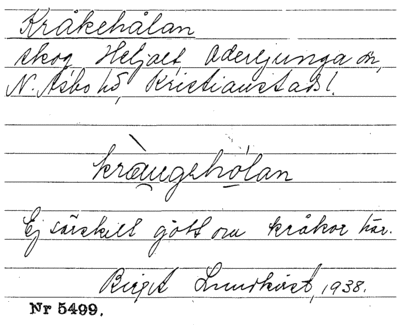 Kråkehålan
skog Heljalt, Oderljunga sn,
N. Åsbo hd, Kristianstads l.
kràu̯gehọlan
Ej särskilt gott om kråkor här.
Birgit Lundkvist, 1938.
Nr 5499.